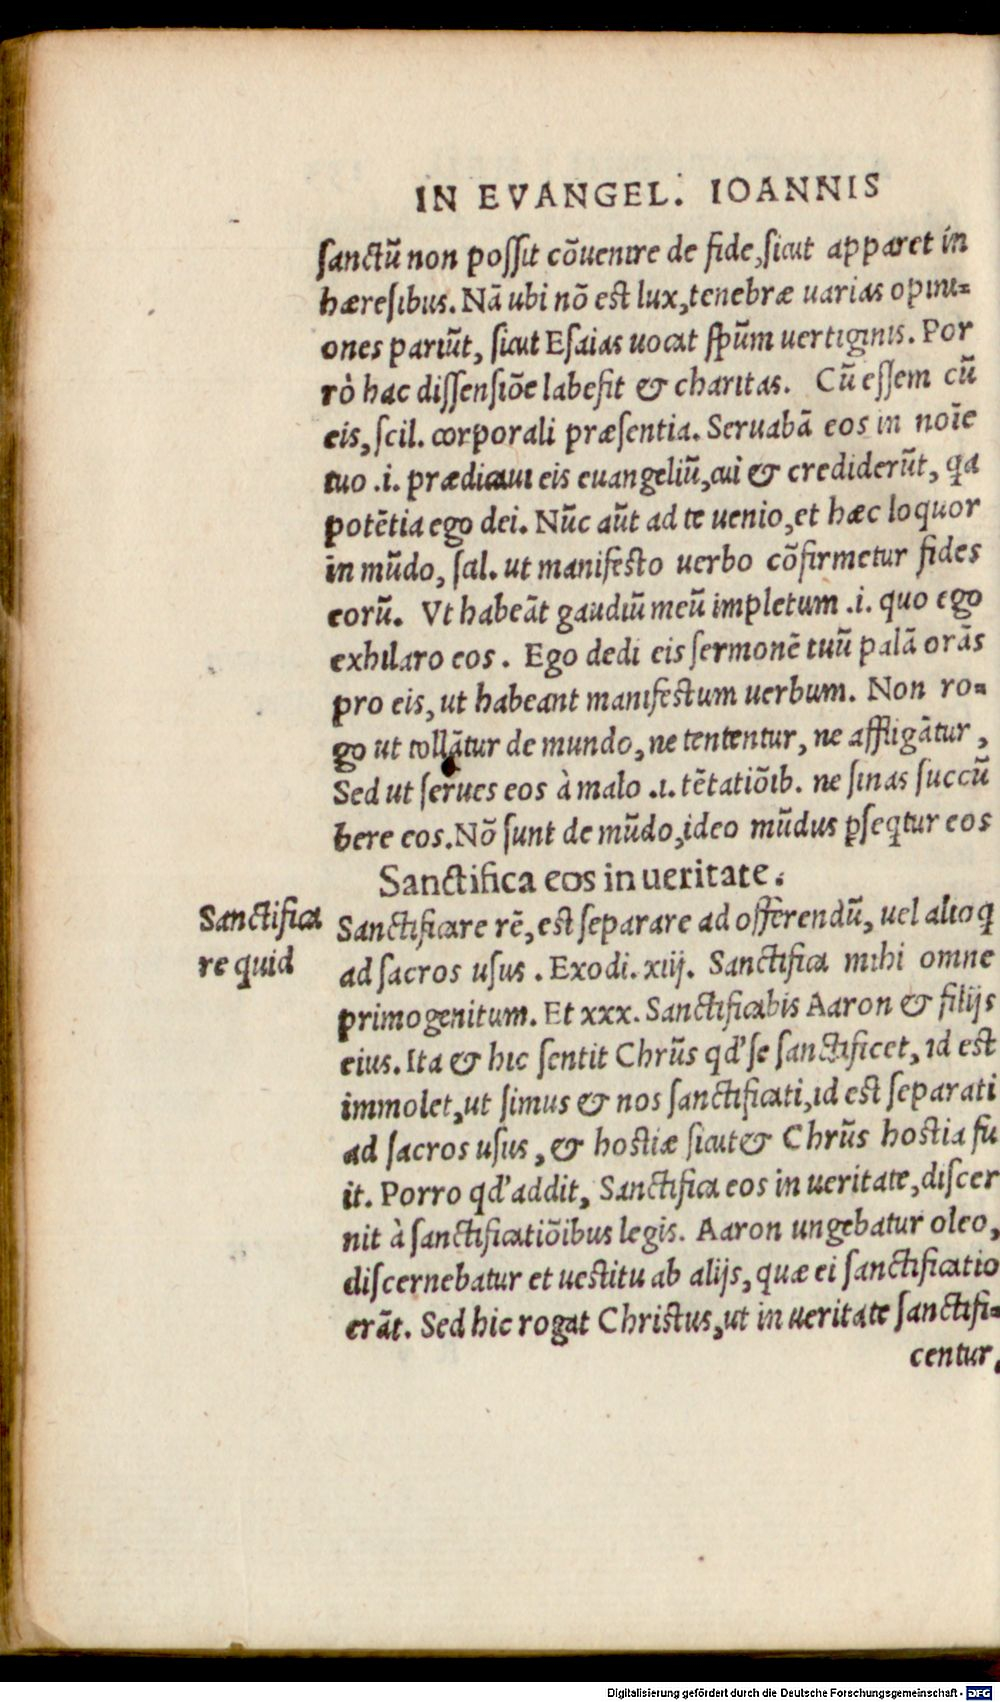 IN EVANGEL. IOANNIS
ſanctũ non poſſit cõuenire de fide, ſicut apparet in
hæreſibus. Nã ubi nõ est lux, tenebræ uarias opini-
ones pariũt, ſicut Eſaias uocat ſpũm uertiginis. Por
rò hac diſſenſiõe labefit & charitas. Cũ eſſem cũ
eis, ſcil. corporali præſentia. Seruabã eos in noĩe
tuo .i. prædicaui eis euangeliũ, cui & crediderũt, qa
potẽtia ego dei. Nũc aũt ad te uenio, et hæc loquor
in mũdo, ſcil. ut manifesto uerbo cõfirmetur fides
eorũ. Vt habeãt gaudiũ meũ impletum .i. quo ego
exhilaro eos. Ego dedi eis ſermonẽ tuũ palã orãs
pro eis, ut habeant manifestum uerbum. Non ro-
go ut tollãtur de mundo, ne tententur, ne affligãtur,
Sed ut ſerues eos à malo .i. tẽtatiõib. ne ſinas ſuccũ
bere eos. Nõ ſunt de mũdo, ideo mũdus pſeqtur eos
Sanctifica eos in ueritate.
Sanctifica
re quid
Sanctificare rẽ, est ſeparare ad offerendũ, uel alioq
ad ſacros uſus. Exodi. xiij. Sanctifica mihi omne
primogenitum. Et xxx. Sanctificabis Aaron & filijs
eius. Ita & hic ſentit Chrũs qd' ſe ſanctificet, id est
immolet, ut ſimus & nos ſanctificati, id est ſeparati
ad ſacros uſus, & hostiæ ſicut & Chrũs hostia fu
it. Porro qd' addit, Sanctifica eos in ueritate, diſcer
nit à ſanctificatiõibus legis. Aaron ungebatur oleo,
diſcernebatur et uestitu ab alijs, quæ ei ſanctificatio
erãt. Sed hic rogat Christus, ut in ueritate ſanctifi-
centur,
Digitalisierung gefördert durch die Deutsche Forschungsgemeinschaft - DFG